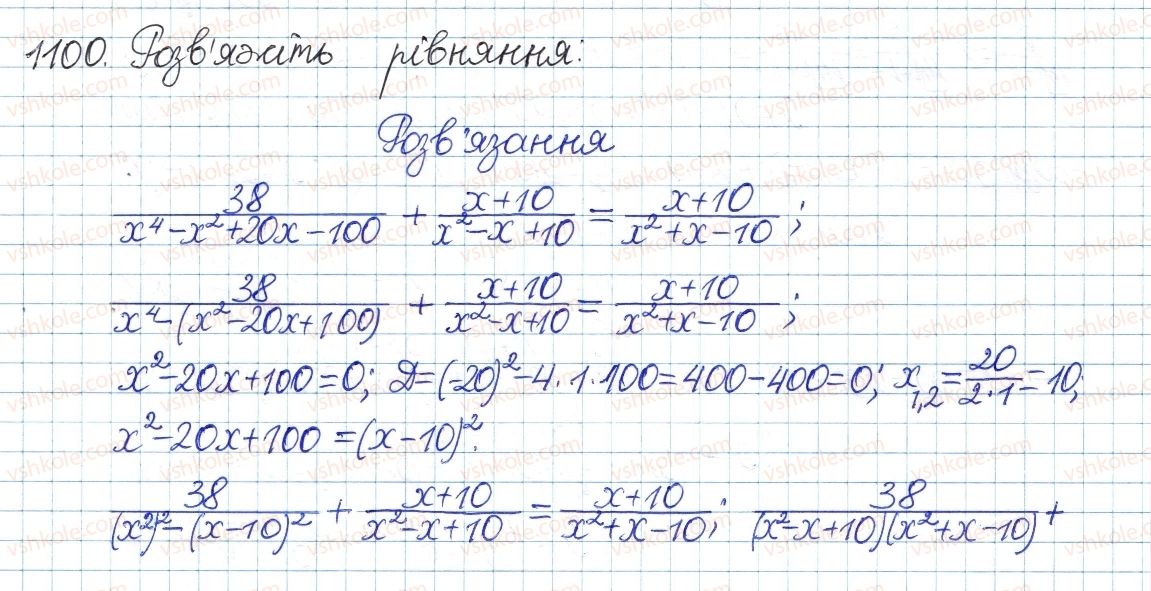 1100. Розв'яжіть рівняння:
Розв'язання
38/(x⁴-x²+20x-100) + (x+10)/(x²-x+10) = (x+10)/(x²+x-10);
38/(x⁴-(x²-20x+100)) + (x+10)/(x²-x+10) = (x+10)/(x²+x-10);
x²-20x+100=0; D=(-20)²-4·1·100=400-400=0; x₁,₂=20/(2·1)=10;
x²-20x+100=(x-10)².
38/((x²)²-(x-10)²) + (x+10)/(x²-x+10) = (x+10)/(x²+x-10); 38/((x²-x+10)(x²+x-10)) +